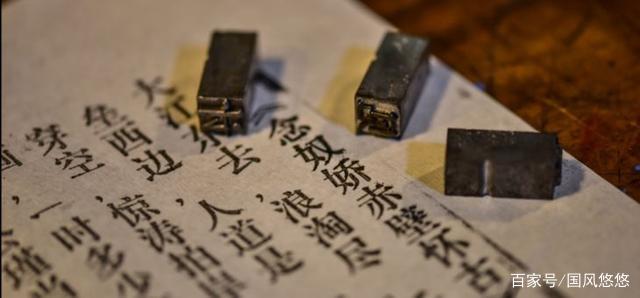 念奴娇赤壁怀古
大江东去，浪淘尽
垒西边，人道是
穿空，惊涛拍岸
画，一时多少
公瑾当
百家号/国风悠悠